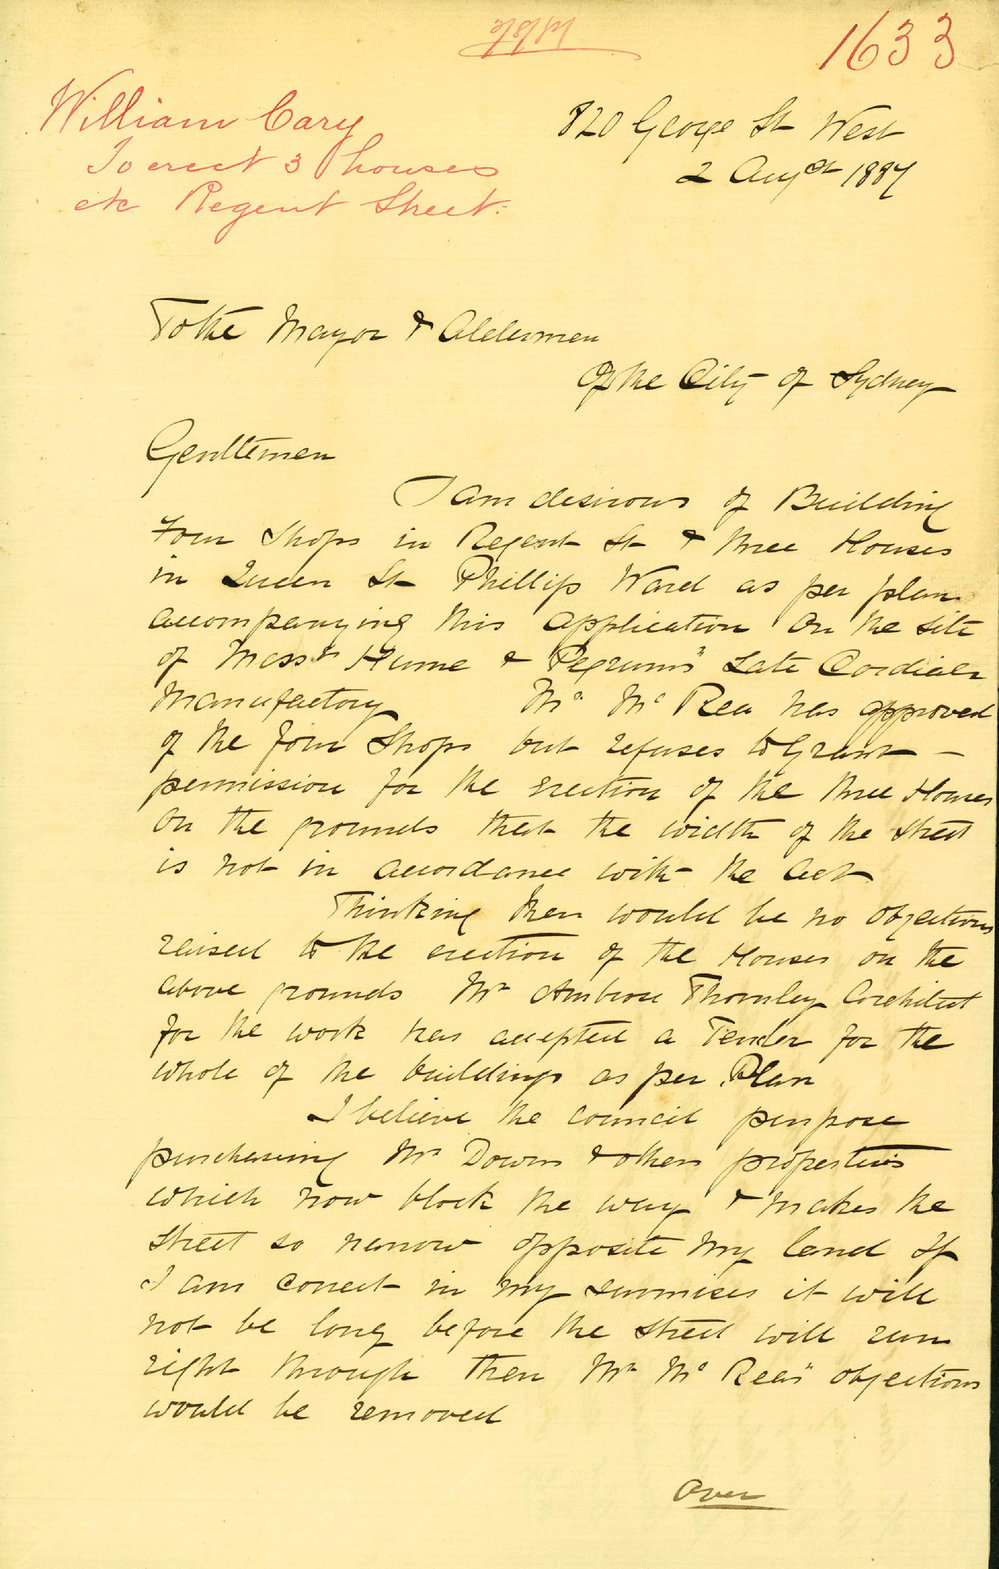 1633
William Cary
To erect 3 houses
etc Regent Street.
820 George St West
2 Augst 1887
To the Mayor & Aldermen
Of the City of Sydney
Gentlemen
I am desirous of Building
Four Shops in Regent St & three Houses
in Queen St Phillip Ward as per plan
accompanying this application on the site
of Messrs Hume & Pegrums" Late Cordial
Manufactory Mr Mc Rea has approved
of the four Shops but refuses to Grant –
permission for the erection of the three Houses
on the grounds that the width of the street
is not in accordance with the Act
Thinking there would be no objections
raised to the erection of the Houses on the
above grounds Mr Ambrose Thornley Architect
for the work has accepted a Tender for the
whole of the buildings as per Plan
I believe the council purpose
purchasing Mr Downs & others properties
which now block the way & makes the
street so narrow opposite my land If
I am correct in my surmises it will
not be long before the street will run
right through then Mr Mc Reas" objections
would be removed
Over